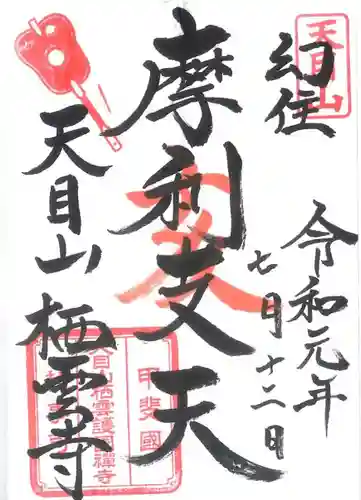 天目山
幻住
令和元年
七月十二日
摩利支天
天目山
栖雲寺
甲斐國
天目栖雲護國禅寺